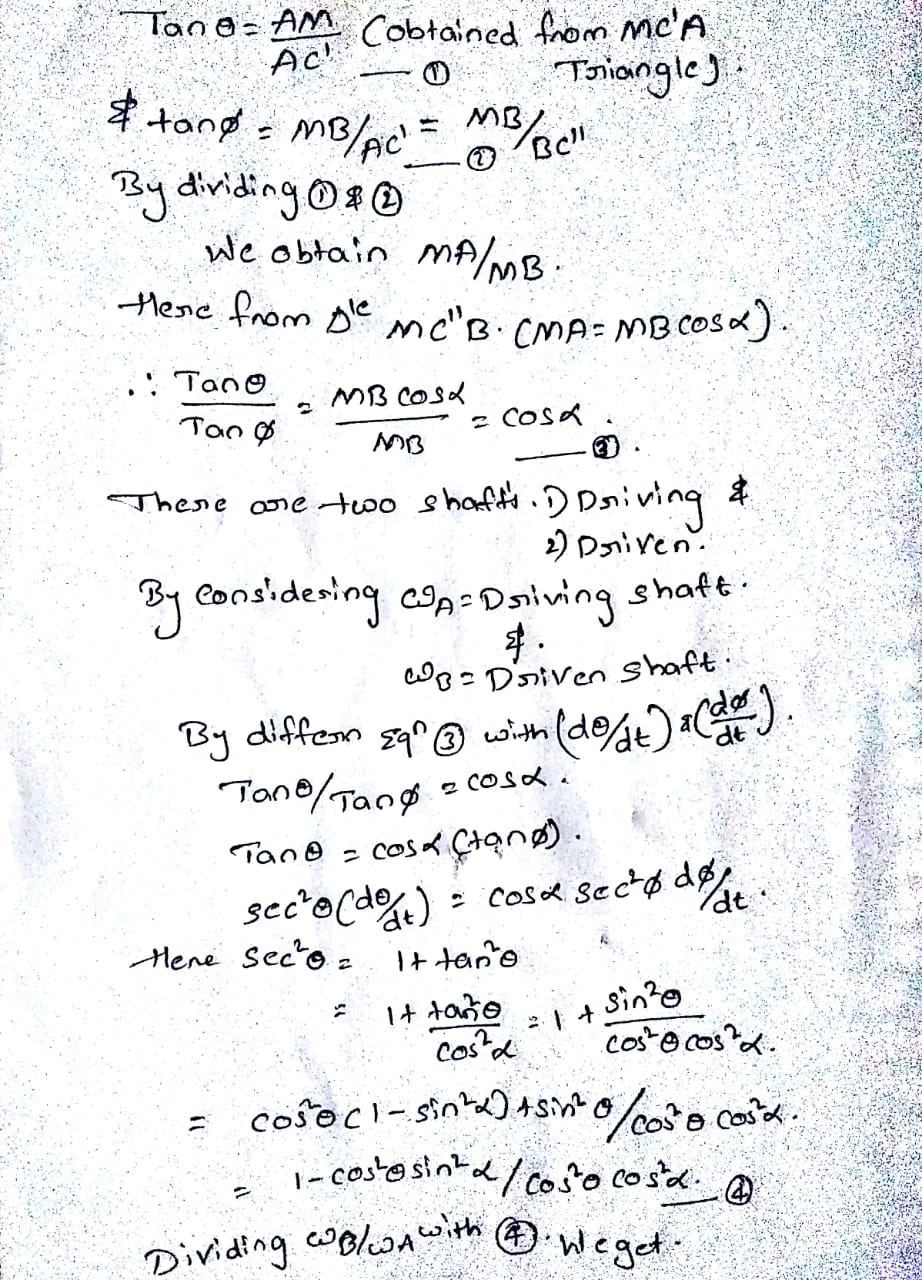 Tan θ = AM/AC' (obtained from MC'A
— ① Triangle).
& tanø = MB/AC' = MB/BC"
— ②
By dividing ① & ②
We obtain MA/MB.
Here from Δle MC"B. (MA = MB cosα).
∴ Tan θ / Tan ø = MB cosα / MB = cosα.
— ③.
There are two shafts. 1) Driving &
2) Driven.
By Considering ωA = Driving shaft.
&.
ωB = Driven shaft.
By differn Eqn ③ with (dθ/dt) & (dø/dt).
Tanθ/Tanø = cosα.
Tanθ = cosα (tanø).
sec²θ(dθ/dt) = cosα sec²ø dø/dt.
Here Sec²θ = 1 + tan²θ
= 1 + tan²θ/cos²α = 1 + sin²θ/cos²θ cos²α.
= cos²θ(1 - sin²α) + sin²θ/cos²θ cos²α.
= 1 - cos²θ sin²α/cos²θ cos²α. — ④
Dividing ωB/ωA with ④. We get.